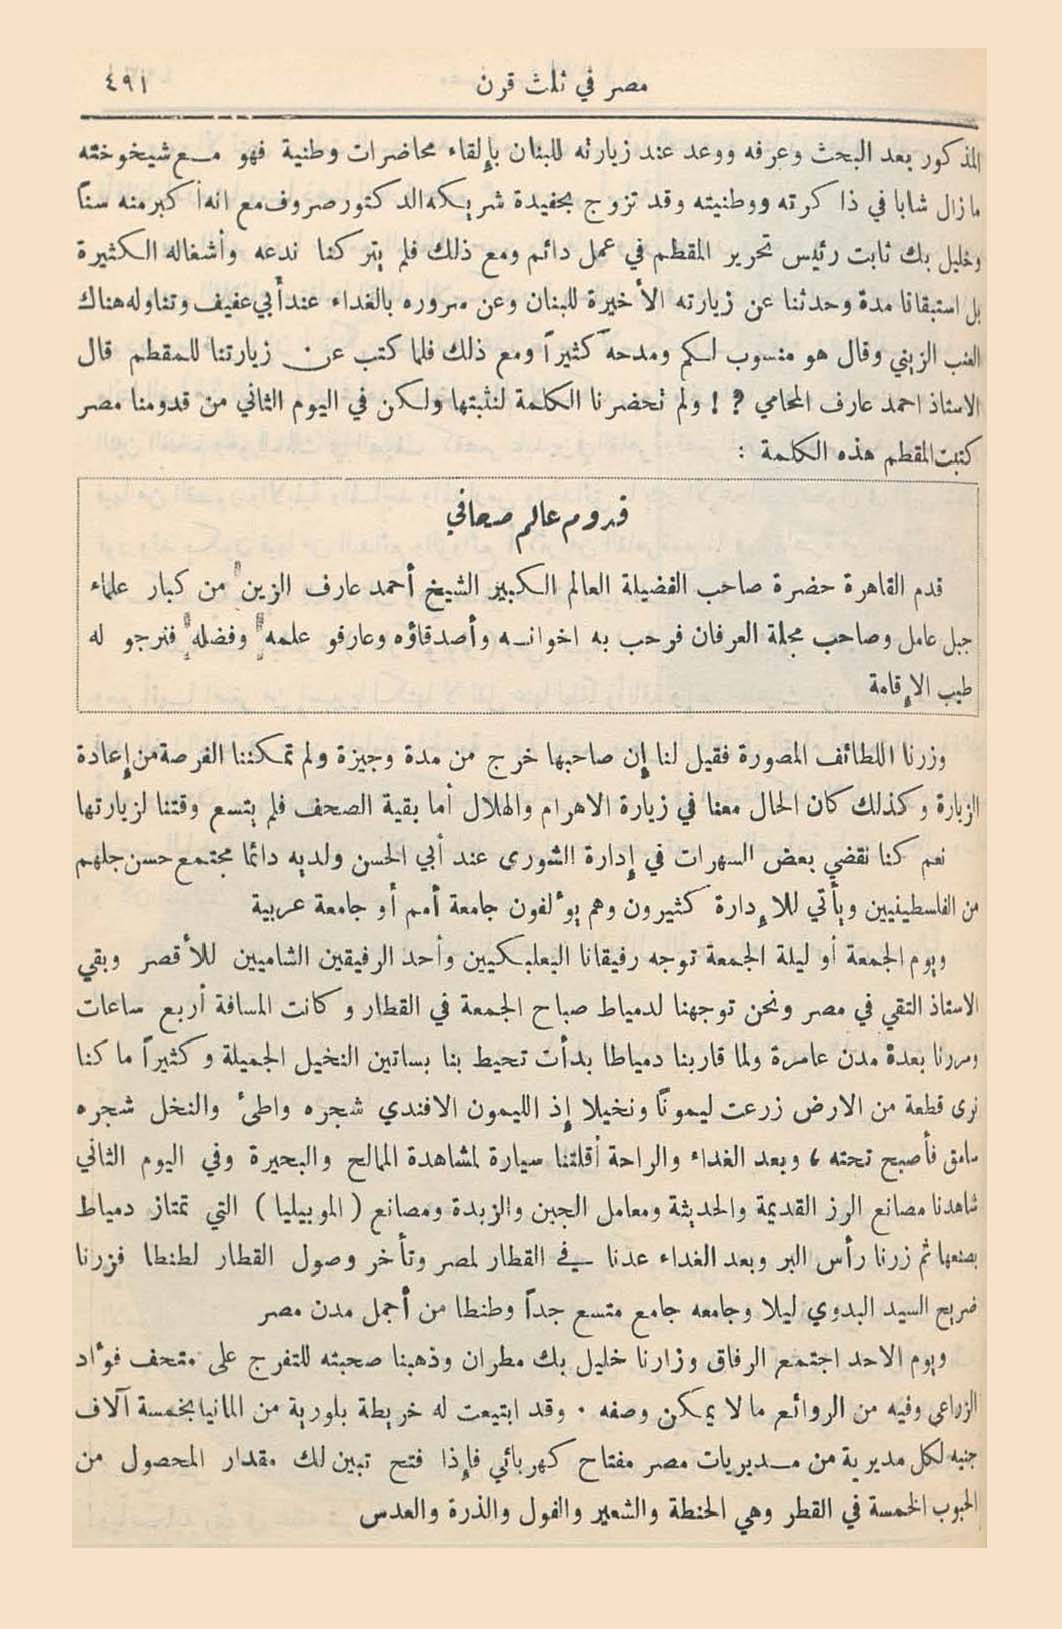 مصر في ثلث قرن ٤٩١
المذكور بعد البحث وعرفه ووعد عند زيارته للبنان بإلقاء محاضرات وطنية فهو مع شيخوخته
مازال شابا في ذاكرته ووطنيته وقد تزوج بحفيدة شريكه الدكتور صروف مع انه أكبر منه سناً
وخليل بك ثابت رئيس تحرير المقطم في عمل دائم ومع ذلك فلم يتركنا ندعه وأشغاله الكثيرة
بل استبقانا مدة وحدثنا عن زيارته الأخيرة للبنان وعن سروره بالغداء عند أبي عفيف وتناوله هناك
العنب الزيني وقال هو منسوب لكم ومدحه كثيراً ومع ذلك فلما كتب عن زيارتنا للمقطم قال
الاستاذ احمد عارف المحامي ? ! ولم تحضرنا الكلمة لنثبتها ولكن في اليوم الثاني من قدومنا مصر
كتبت المقطم هذه الكلمة :
قدوم عالم صحافي
قدم القاهرة حضرة صاحب الفضيلة العالم الكبير الشيخ أحمد عارف الزين من كبار علماء
جبل عامل وصاحب مجلة العرفان فرحب به اخوانه وأصدقاؤه وعارفو علمه وفضله فنرجو له
طيب الإقامة
وزرنا اللطائف المصورة فقيل لنا إن صاحبها خرج من مدة وجيزة ولم تمكننا الفرصة من إعادة
الزيارة وكذلك كان الحال معنا في زيارة الاهرام والهلال أما بقية الصحف فلم يتسع وقتنا لزيارتها
نعم كنا نقضي بعض السهرات في إدارة الشورى عند أبي الحسن ولديه دائما مجتمع حسن جلهم
من الفلسطينيين ويأتي للإدارة كثيرون وهم يؤلفون جامعة أمم أو جامعة عربية
ويوم الجمعة أو ليلة الجمعة توجه رفيقانا البعلبكيين وأحد الرفيقين الشاميين للأقصر وبقي
الاستاذ التقي في مصر ونحن توجهنا لدمياط صباح الجمعة في القطار وكانت المسافة أربع ساعات
ومررنا بعدة مدن عامرة ولما قاربنا دمياطا بدأت تحيط بنا بساتين النخيل الجميلة وكثيراً ما كنا
نرى قطعة من الارض زرعت ليموناً ونخيلا إذ الليمون الافندي شجره واطئ والنخل شجره
سامق فأصبح تحته ، وبعد الغداء والراحة أقلتنا سيارة لمشاهدة المالح والبحيرة وفي اليوم الثاني
شاهدنا مصانع الرز القديمة والحديثة ومعامل الجبن والزبدة ومصانع ( الموبيليا ) التي تمتاز دمياط
بصنعها ثم زرنا رأس البر وبعد الغداء عدنا في القطار لمصر وتأخر وصول القطار لطنطا فزرنا
ضريح السيد البدوي ليلا وجامعه جامع متسع جداً وطنطا من أجمل مدن مصر
ويوم الاحد اجتمع الرفاق وزارنا خليل بك مطران وذهبنا صحبته للتفرج على متحف فؤاد
الزراعي وفيه من الروائع ما لا يمكن وصفه . وقد ابتيعت له خريطة بلورية من المانيا بخمسة آلاف
جنيه لكل مديرية من مديريات مصر مفتاح كهربائي فإذا فتح تبين لك مقدار المحصول من
الحبوب الخمسة في القطر وهي الحنطة والشعير والفول والذرة والعدس